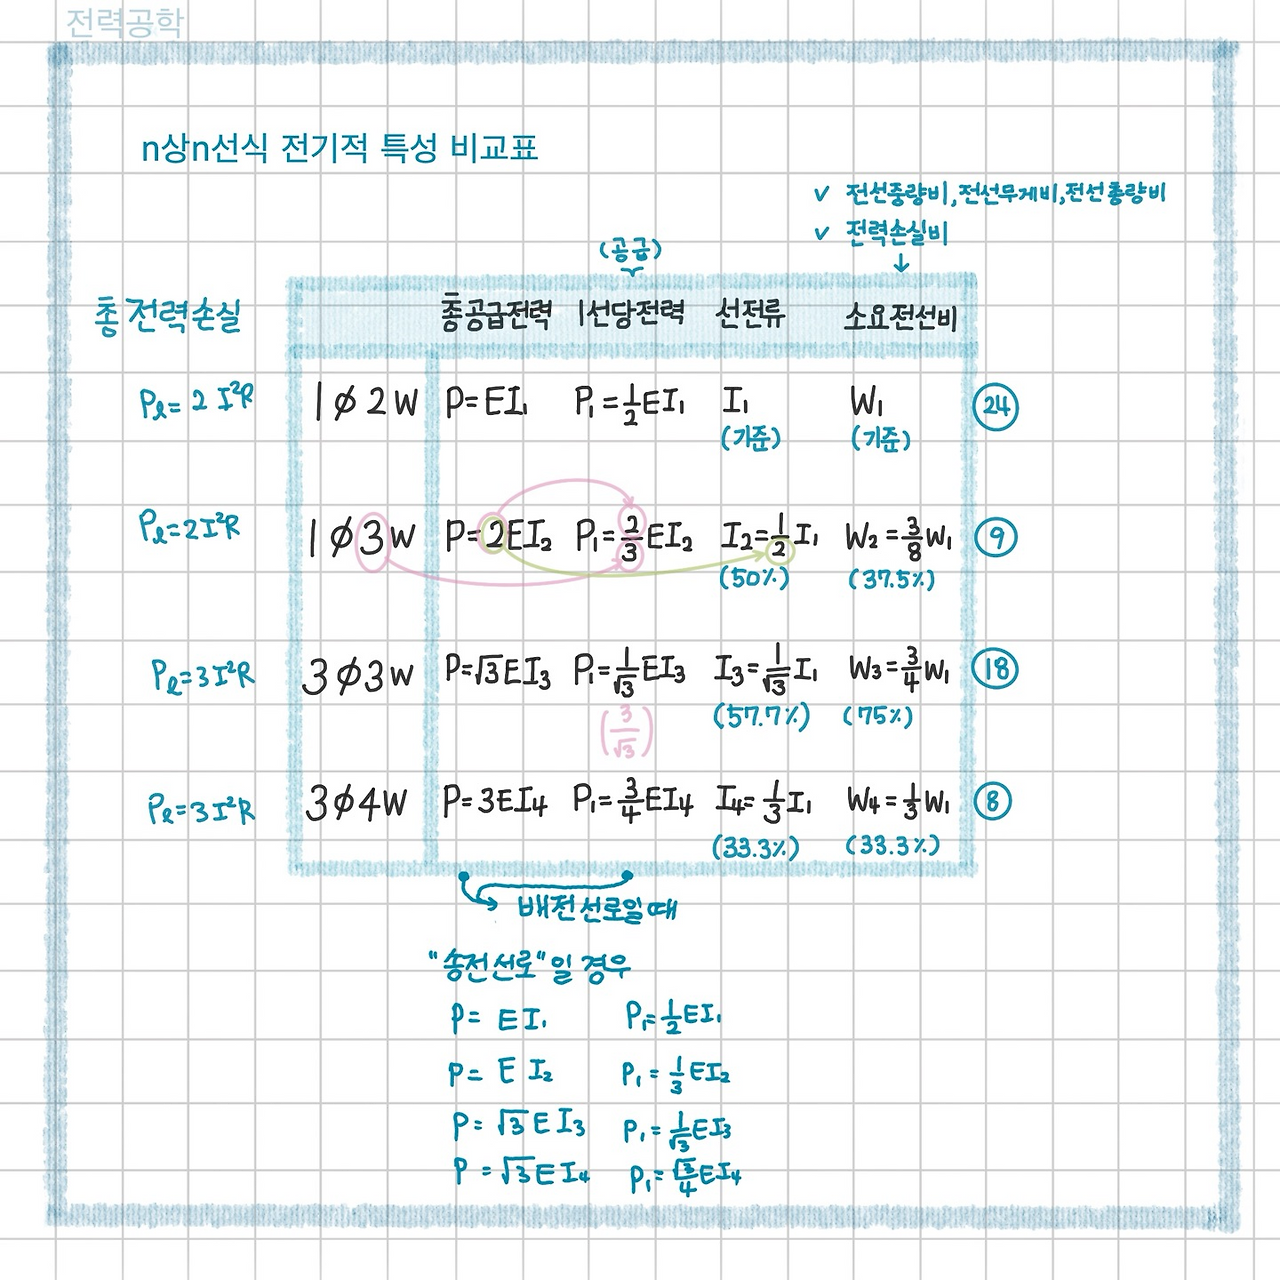 전력공학
n상n선식 전기적 특성 비교표
✓ 전선중량비,전선무게비,전선총량비
✓ 전력손실비
(공급)
총전력손실 총공급전력 1선당전력 선전류 소요전선비
Pℓ=2I²R 1φ2W P=EI₁ P₁=1/2EI₁ I₁ W₁ 24
(기준) (기준)
Pℓ=2I²R 1φ3W P=2EI₂ P₁=2/3EI₂ I₂=1/2I₁ W₂=3/8W₁ 9
(50%) (37.5%)
Pℓ=3I²R 3φ3W P=√3EI₃ P₁=1/√3EI₃ I₃=1/√3I₁ W₃=3/4W₁ 18
(3/√3) (57.7%) (75%)
Pℓ=3I²R 3φ4W P=3EI₄ P₁=3/4EI₄ I₄=1/3I₁ W₄=1/3W₁ 8
(33.3%) (33.3%)
배전선로일때
"송전선로"일 경우
P=EI₁ P₁=1/2EI₁
P=EI₂ P₁=1/3EI₂
P=√3EI₃ P₁=1/√3EI₃
P=√3EI₄ P₁=√3/4EI₄